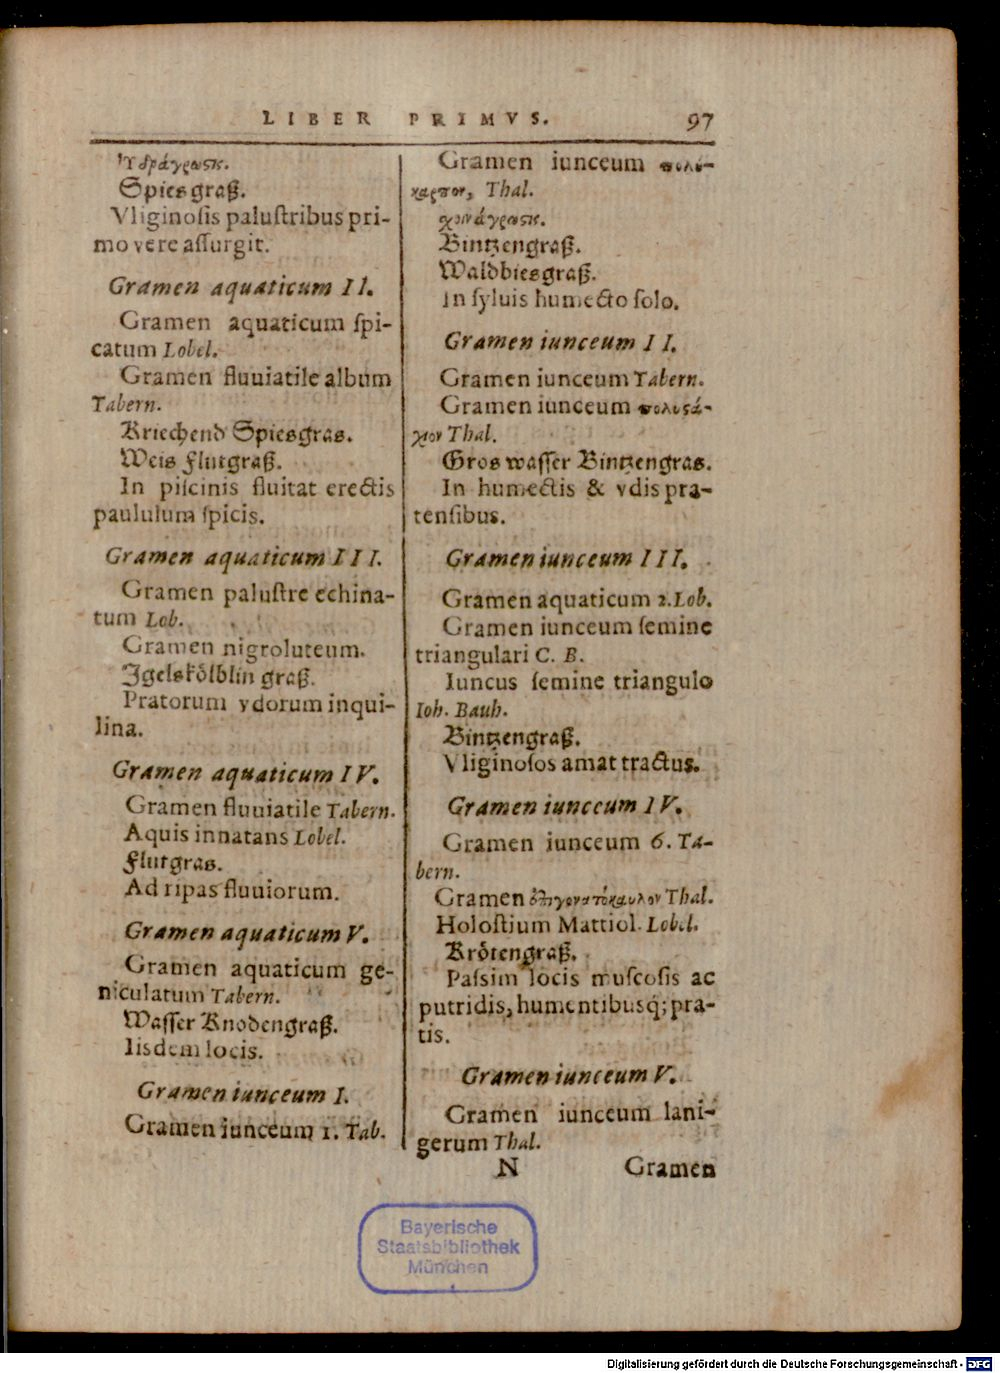 LIBER PRIMVS. 97
Ὑδράγρωσις.
Spiesgraß.
Vliginoſis paluſtribus pri-
mo vere aſſurgit.
Gramen aquaticum II.
Gramen aquaticum ſpi-
catum Lobel.
Gramen fluuiatile album
Tabern.
Kriechend Spiesgras.
Weis flutgraß.
In piſcinis fluitat erectis
paululum ſpicis.
Gramen aquaticum III.
Gramen paluſtre echina-
tum Lob.
Gramen nigroluteum.
Igelskölblin graß.
Pratorum vdorum inqui-
lina.
Gramen aquaticum IV.
Gramen fluuiatile Tabern.
Aquis innatans Lobel.
flutgras.
Ad ripas fluuiorum.
Gramen aquaticum V.
Gramen aquaticum ge-
niculatum Tabern.
Waſſer Knodengraß.
Iisdem locis.
Gramen iunceum I.
Gramen iunceum 1. Tab.
Gramen iunceum πολύ-
καρπον, Thal.
χοινάγρωσις.
Bintzengraß.
Waldbiesgraß.
In ſyluis humecto ſolo.
Gramen iunceum II.
Gramen iunceum Tabern.
Gramen iunceum πολυϛά-
χιον Thal.
Gros waſſer Bintzengras.
In humectis & vdis pra-
tenſibus.
Gramen iunceum III.
Gramen aquaticum 2. Lob.
Gramen iunceum ſemine
triangulari C. B.
Iuncus ſemine triangulo
Ioh. Bauh.
Bintzengraß.
Vliginoſos amat tractus.
Gramen iunceum IV.
Gramen iunceum 6. Ta-
bern.
Gramen ὀλιγονατόκαυλον Thal.
Holoſtium Mattiol. Lobel.
Krötengraß.
Paſsim locis muſcoſis ac
putridis, humentibusq; pra-
tis.
Gramen iunceum V.
Gramen iunceum lani-
gerum Thal.
N Gramen
Bayerische
Staatsbibliothek
München
Digitalisierung gefördert durch die Deutsche Forschungsgemeinschaft - DFG